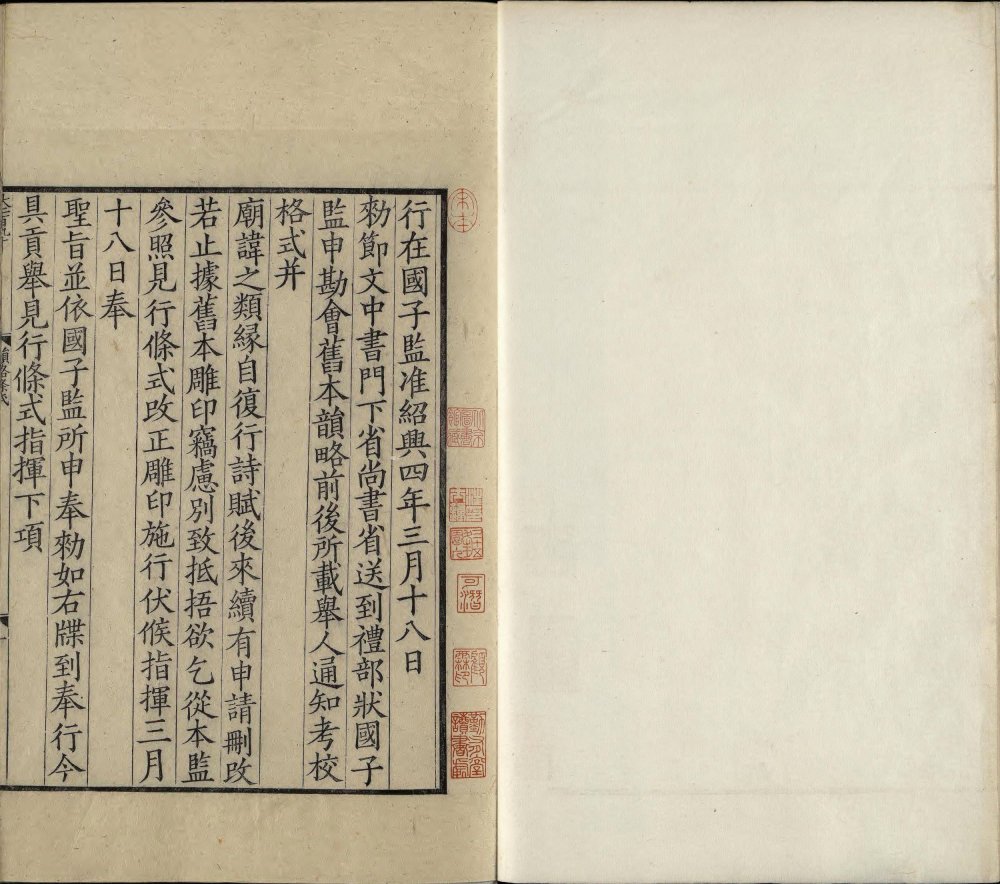 行在國子監准紹興四年三月十八日
勑節文中書門下省尚書省送到禮部狀國子
監申勘會舊本韻略前後所載舉人通知考校
格式并
廟諱之類緣自復行詩賦後來續有申請刪改
若止據舊本雕印竊慮別致抵捂欲乞從本監
參照見行條式改正雕印施行伏候指揮三月
十八日奉
聖旨並依國子監所申奉勑如右牒到奉行今
具貢舉見行條式指揮下項
韻略條式